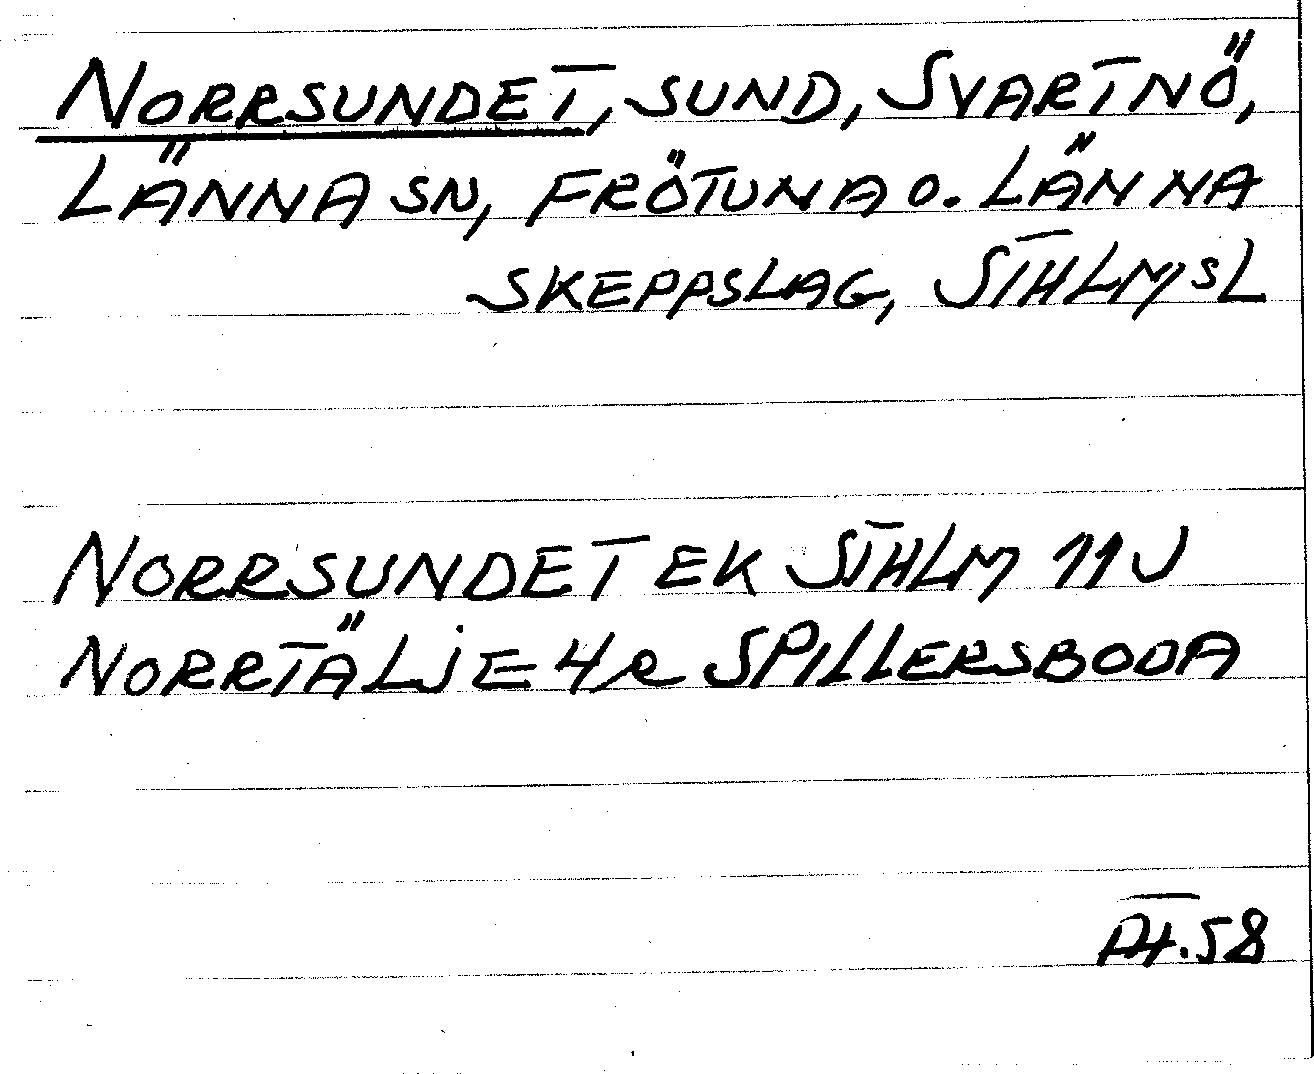 NORRSUNDET, SUND, SVARTNÖ,
LÄNNA SN, FRÖTUNA O. LÄNNA
SKEPPSLAG, STHLMSL
NORRSUNDET EK STHLM 11J
NORRTÄLJE 4R SPILLERSBODA
AH.58